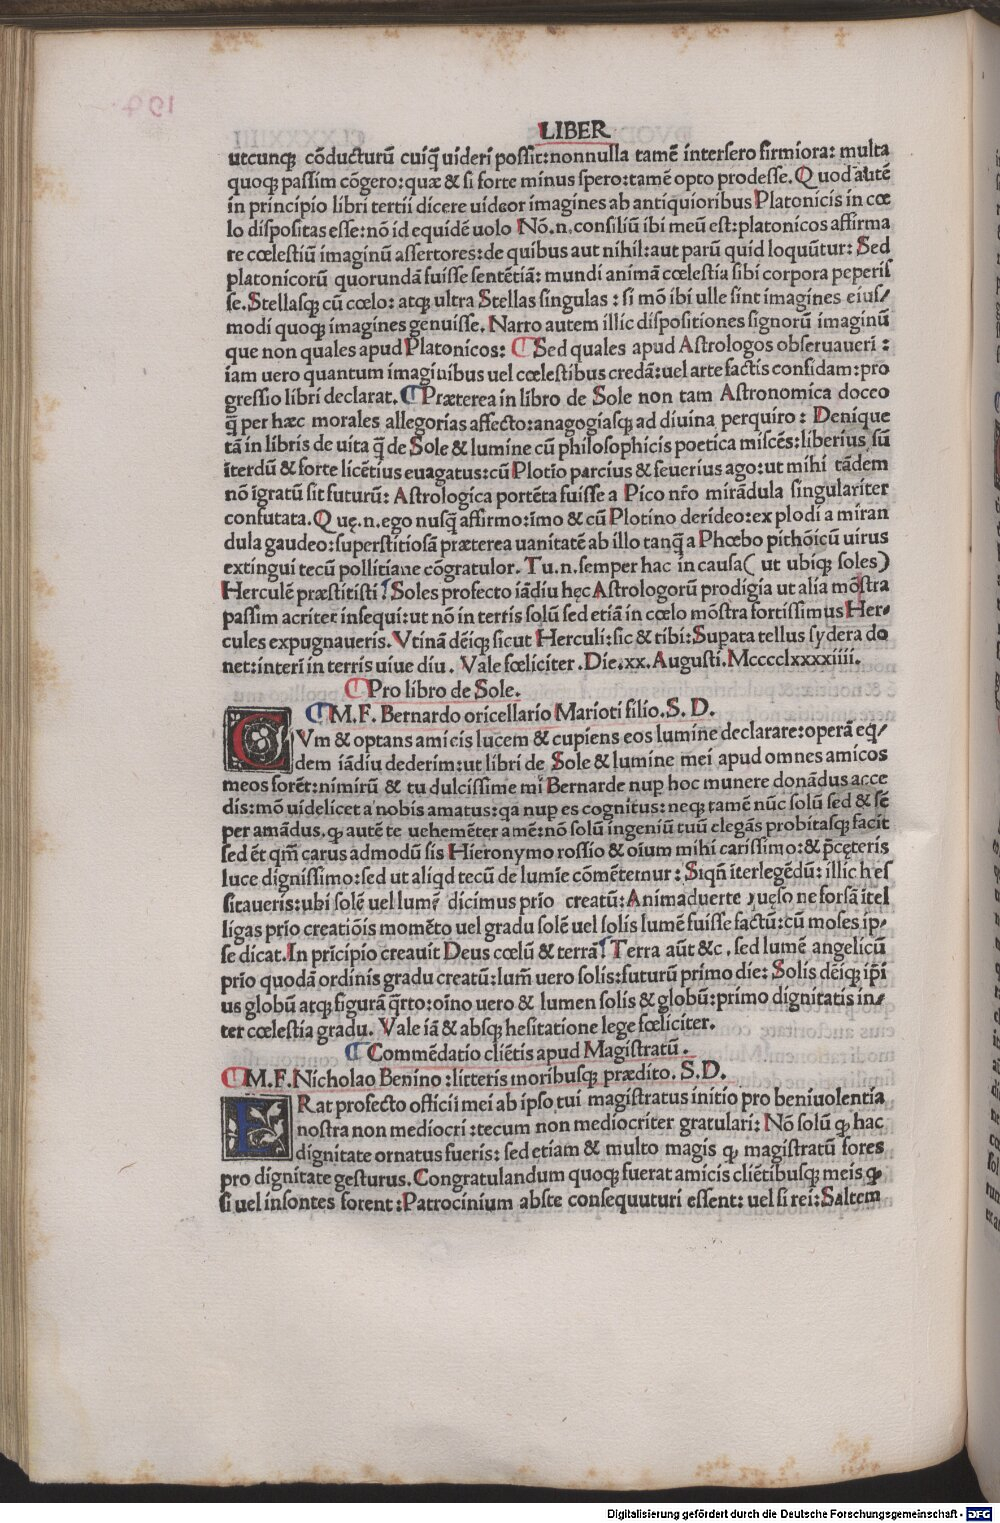 LIBER
utcunqꝫ cōducturū cuiq̄ uideri possit: nonnulla tamē intersero firmiora: multa
quoqꝫ passim cōgero: quæ & si forte minus spero: tamē opto prodesse. Quod autē
in principio libri tertii dicere uideor imagines ab antiquioribus Platonicis in cœ
lo dispositas esse: nō id equidē uolo Nō.n. consiliū ibi meū est: platonicos affirma
re cœlestiū imaginū assertores: de quibus aut nihil: aut parū quid loquūtur: Sed
platonicorū quorundā fuisse sentētiā: mundi animā cœlestia sibi corpora peperis
se. Stellasqꝫ cū cœlo: atqꝫ ultra Stellas singulas: si mō ibi ulle sint imagines eius/
modi quoqꝫ imagines genuisse. Narro autem illic dispositiones signorū imaginū
que non quales apud Platonicos: ¶ Sed quales apud Astrologos obseruaueri:
iam uero quantum imaginibus uel cœlestibus credā: uel arte factis confidam: pro
gressio libri declarat. ¶ Præterea in libro de Sole non tam Astronomica doceo
q̄ per hæc morales allegorias affecto: anagogiasqꝫ ad diuina perquiro: Denique
tā in libris de uita q̄ de Sole & lumine cū philosophicis poetica miscēs: liberius sū
īterdū & forte licētius euagatus: cū Plotio parcius & seuerius ago: ut mihi tādem
nō īgratū sit futurū: Astrologica portēta fuisse a Pico nr̄o mirādula singulariter
confutata. Quę.n. ego nusq̄ affirmo: īmo & cū Plotino derideo: explodi a miran
dula gaudeo: superstitiosā præterea uanitatē ab illo tanq̄ a Phœbo pithōicū uirus
extingui tecū pollitiane cōgratulor. Tu.n. semper hac in causa (ut ubiqꝫ soles)
Herculē præstitisti! Soles profecto iādiu hęc Astrologorū prodigia ut alia mōstra
passim acriter insequi: ut nō in terris solū sed etiā in cœlo mōstra fortissimus Her-
cules expugnaueris. Vtinā dēiqꝫ sicut Herculi: sic & tibi: Supata tellus sydera do
net: interī in terris uiue diu. Vale fœliciter. Die.xx. Augusti. Mcccclxxxxiiii.
¶ Pro libro de Sole.
¶ M.F. Bernardo oricellario Marioti filio. S. D.
CVm & optans amicis lucem & cupiens eos lumine declarare: operā eq̄/
dem iādiu dederim: ut libri de Sole & lumine mei apud omnes amicos
meos forēt: nimirū & tu dulcissime mi Bernarde nuꝑ hoc munere donādus acce
dis: mō uidelicet a nobis amatus: qa nuꝑ es cognitus: neqꝫ tamē nūc solū sed & sē
per amādus, ꝙ autē te uehemēter amē: nō solū ingeniū tuū elegās probitasqꝫ facit
sed ēt qm̄ carus admodū sis Hieronymo rossio & oium mihi carissimo: & p̄cęteris
luce dignissimo: sed ut aliqd tecū de lumīe cōmēternur: Siqn̄ iterlegēdū: illic hes
sitaueris: ubi solē uel lumē dicimus prīo creatū: Animaduerte ꝗuęso ne forsā ītel
ligas prīo creatiōis momēto uel gradu solē uel solis lumē fuisse factū: cū moses ip-
se dicat. In prīcipio creauit Deus cœlū & terrā! Terra aūt &c, sed lumē angelicū
prīo quodā ordinis gradu creatū: lum̄ uero solis: futurū primo die: Solis dēiqꝫ ip̄i
us globū atqꝫ figurā q̄rto: oīno uero & lumen solis & globū: primo dignitatis in-
ter cœlestia gradu. Vale iā & absqꝫ hesitatione lege fœliciter.
¶ Commēdatio cliētis apud Magistratū.
¶ M.F. Nicholao Benino: litteris moribusqꝫ prædito. S. D.
ERat profecto officii mei ab ipso tui magistratus initio pro beniuolentia
nostra non mediocri: tecum non mediocriter gratulari: Nō solū ꝙ hac
dignitate ornatus fueris: sed etiam & multo magis ꝙ magistratū fores
pro dignitate gesturus. Congratulandum quoqꝫ fuerat amicis cliētibusqꝫ meis ꝙ
si uel insontes forent: Patrocinium abste consequuturi essent: uel si rei: Saltem
Digitalisierung gefördert durch die Deutsche Forschungsgemeinschaft - DFG